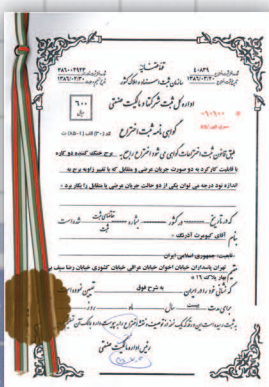 قوه قضائیه
سازمان ثبت اسناد و املاک کشور
اداره کل ثبت شرکتها و مالکیت صنعتی
گواهی نامه ثبت اختراع
۶۰۰
ریال
طبق قانون ثبت اختراعات گواهی می شود اختراع راجع به برج خنک کننده دو کاره
با قابلیت کارکرد به دو صورت جریان عرضی و متقابل که با تغییر زاویه برج به
اندازه نود درجه می توان یکی از دو حالت جریان عرضی یا متقابل را بکار برد
که در تاریخ در کشور بشماره تقاضای ثبت شده است
ثبت
بنام آقای کیومرث آذرنگ
تابعیت: جمهوری اسلامی ایران
تهران پاسداران خیابان اخوان خیابان عراقی خیابان کشوری خیابان رضا سیف بن
بهار پلاک ۱۶
که نشانی خود را در ایران به شرح فوق تعیین نموده است
برای مدت بیست سال ماه روز
رئیس اداره مالکیت صنعتی